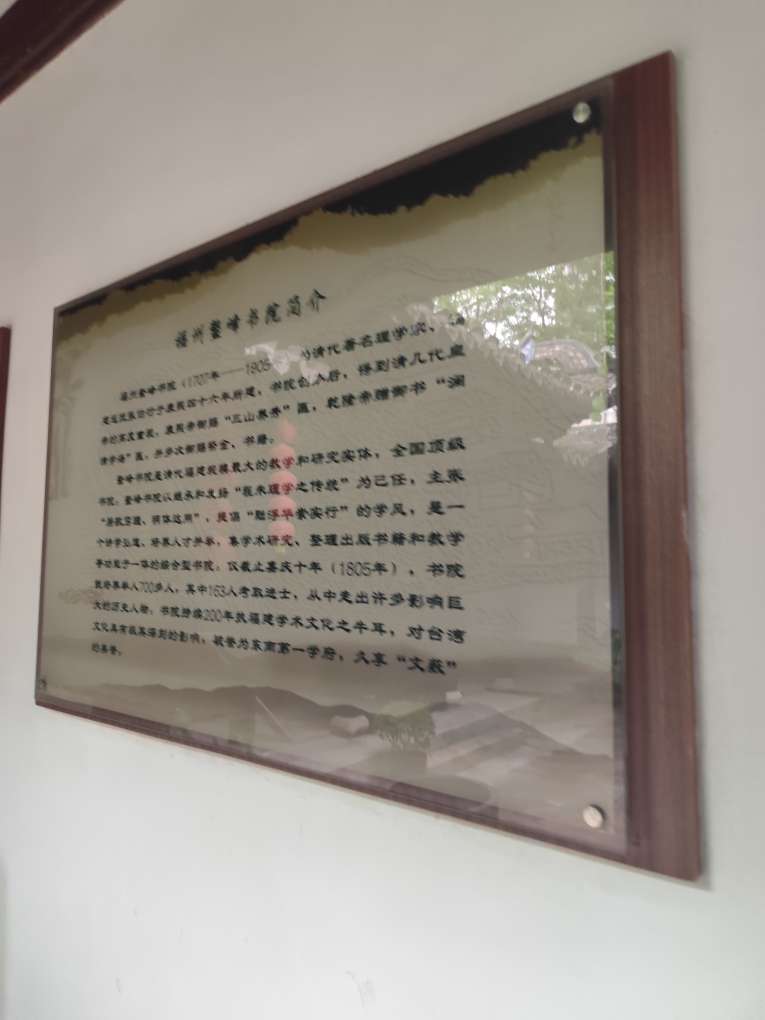 福州鳌峰书院简介
福州鳌峰书院(1707年——1805 为清代著名理学家、
建巡抚张伯行于康熙四十六年所建,书院创办后,得到清几代皇
帝的 重视,康熙帝御赐“三山养秀”匾,乾隆帝赠御书“澜
清学海”匾,并多次御赐帑金、书籍。
鳌峰书院是清代福建规模最大的教学和研究实体,全国顶级
书院。鳌峰书院以继承和发扬“程朱理学之传统”为己任,主张
“ 穷理、明体达用”,提倡“黜浮华崇实行”的学风,是一
个讲学公道、培养人才并举,集学术研究、整理出版书籍和教学
等功能于一体的综合型书院。仅截止嘉庆十年(1805年),书院
就培养举人700多人,其中163人考取进士,从中走出许多影响巨
大的历史人物。书院持续200年执福建学术文化之牛耳,对台湾
文化具有极其深刻的影响,被誉为东南第一学府,久享“文薮”
的美誉。